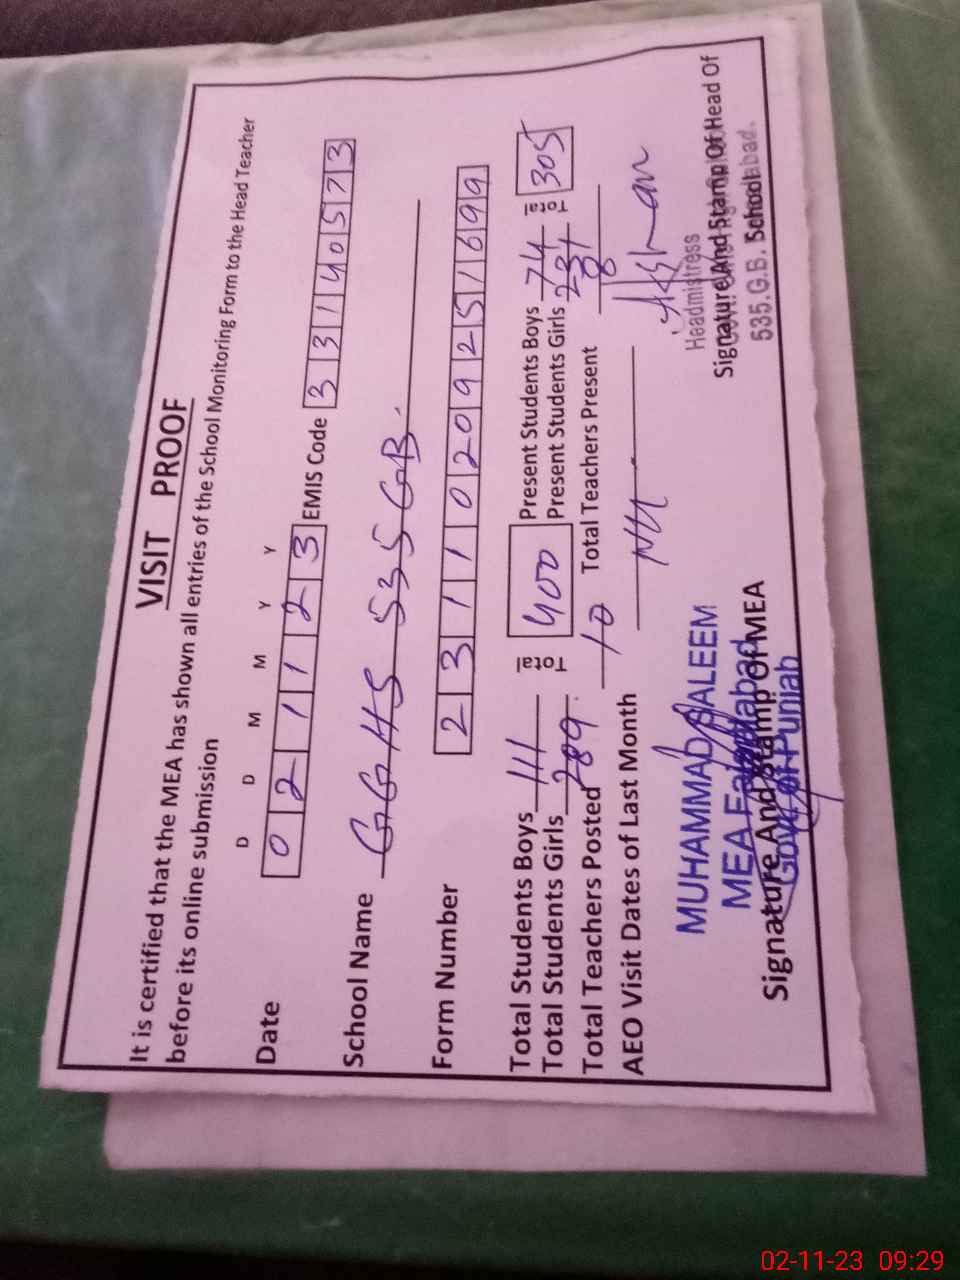 VISIT PROOF
It is certified that the MEA has shown all entries of the School Monitoring Form to the Head Teacher
before its online submission
D D M M Y Y
Date 0 2 1 1 2 3 EMIS Code 3 3 1 4 0 5 7 3
School Name GGHS 535 GB.
Form Number 2 3 1 1 0 2 0 9 2 5 1 6 9 9
Total Students Boys 111 Total 400 Present Students Boys 74 Total 305
Total Students Girls 289 Present Students Girls 231
Total Teachers Posted 10 Total Teachers Present 8
AEO Visit Dates of Last Month Nil
MUHAMMAD SALEEM
MEA Faisalabad
Govt of Punjab
Signature And Stamp Of MEA
Headmistress
Signature And Stamp Of Head Of
School
535.G.B.
02-11-23 09:29